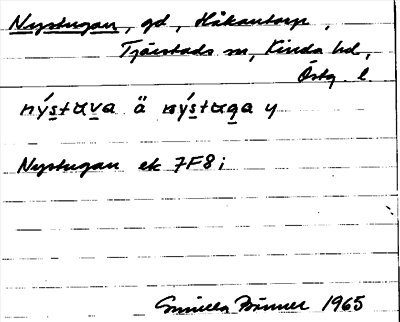 Nystugan, gd, Håkantorp,
Tjärstads sn, Kinda hd,
Östg. l.
nýstuva ä nýstuga y
Nystugan ek 7F8i
Gunilla 1965